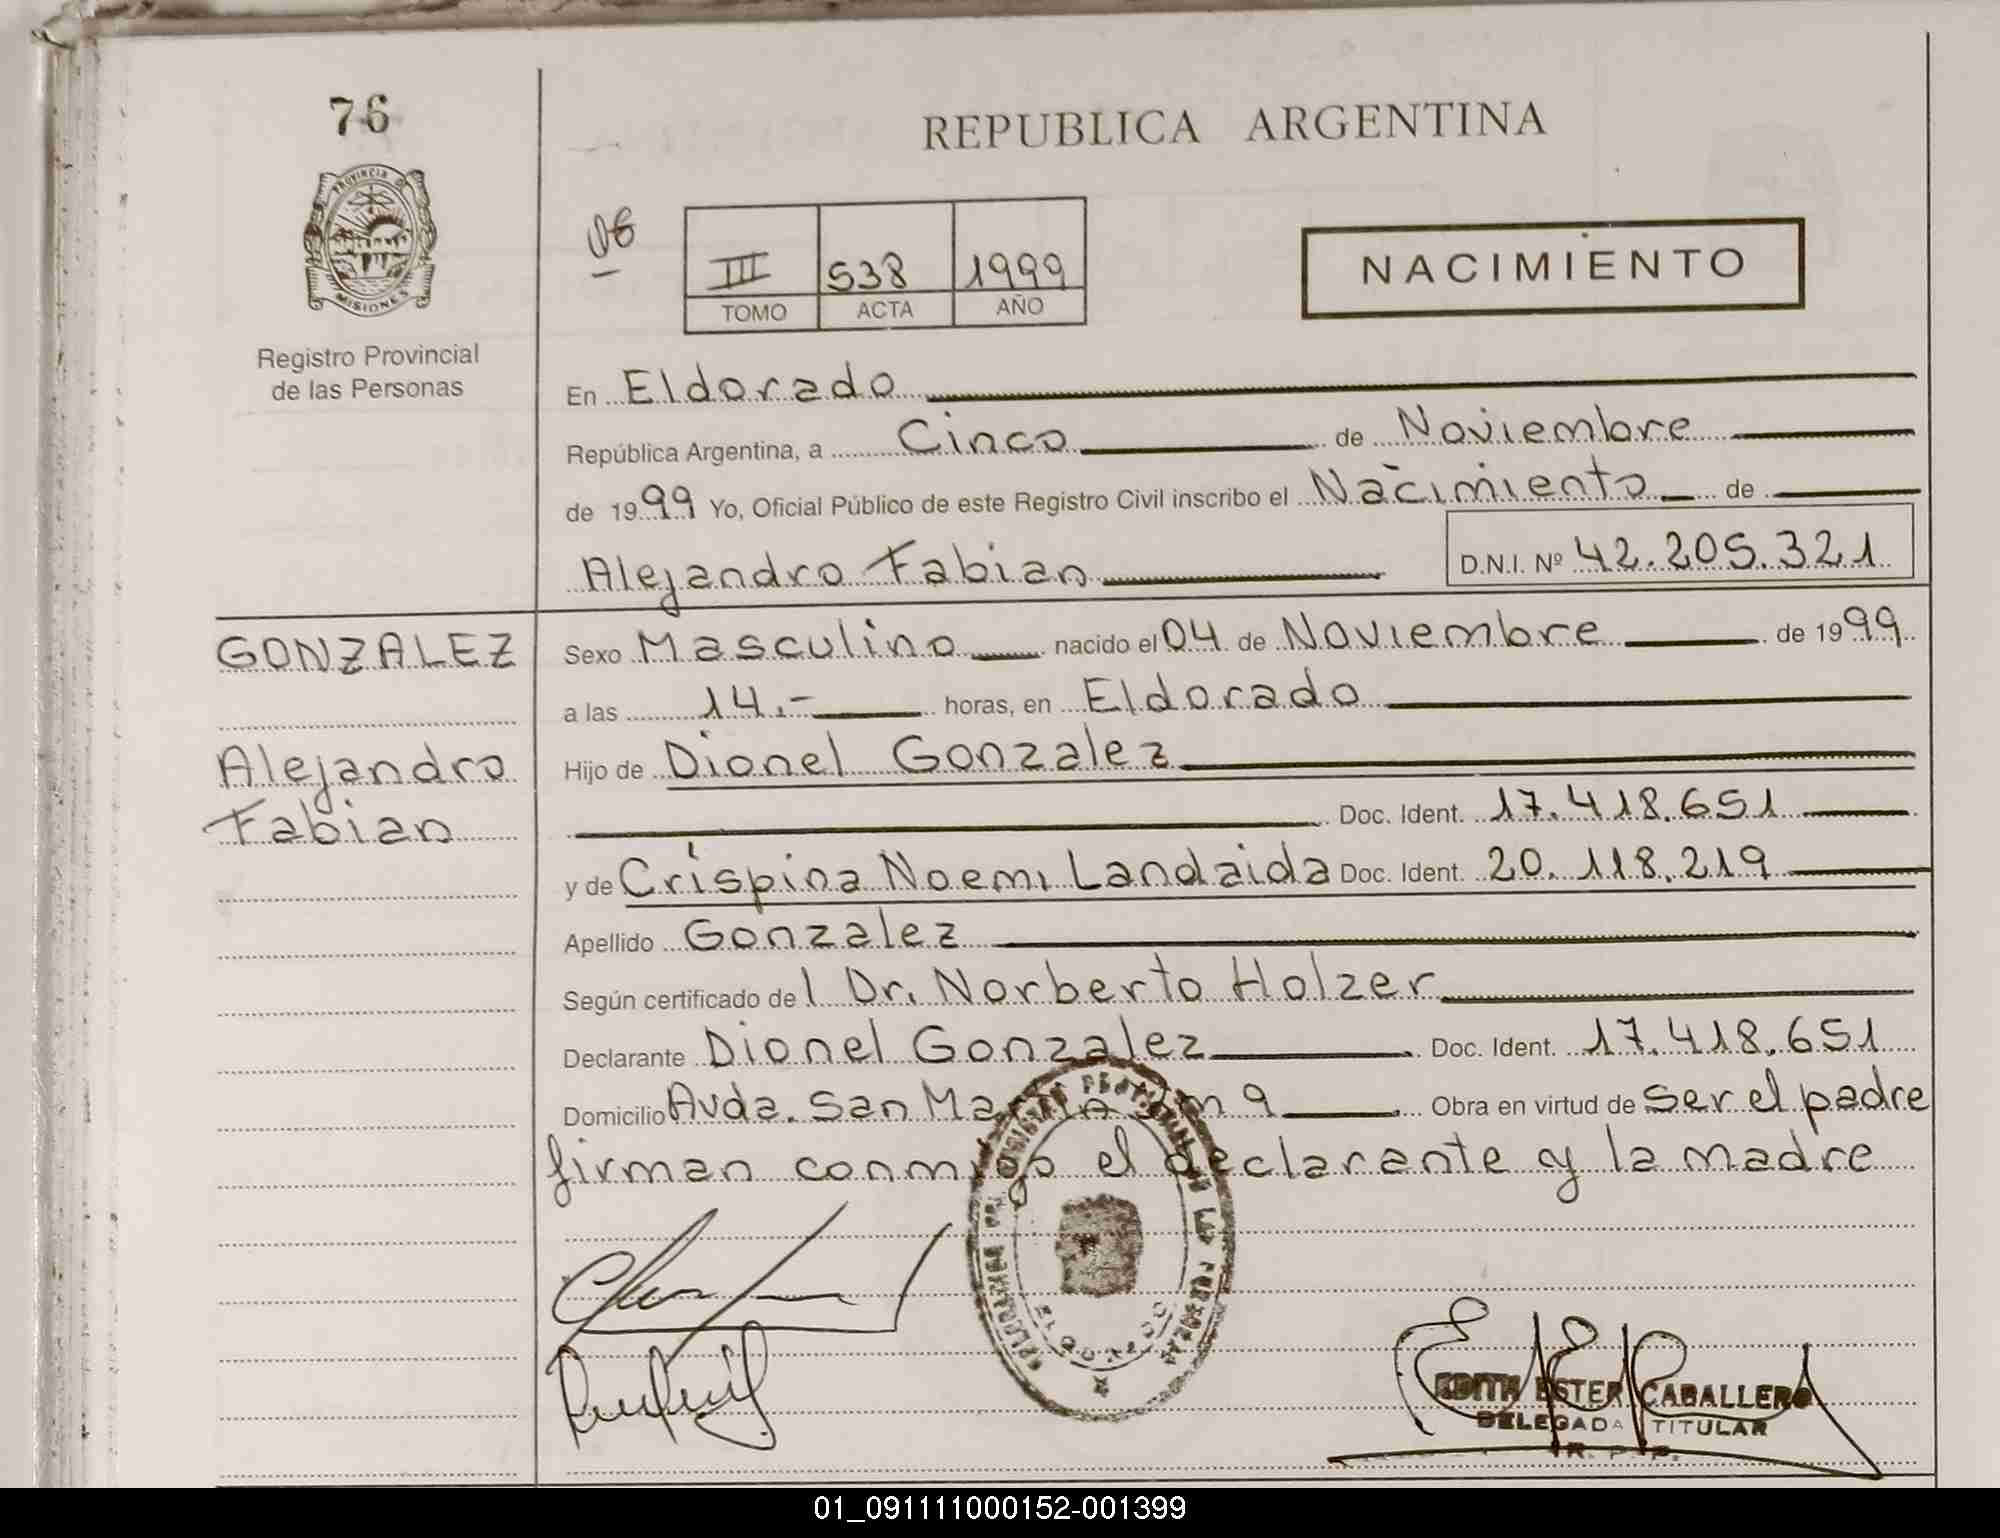 76
PROVINCIA DE
MISIONES
Registro Provincial
de las Personas
REPUBLICA ARGENTINA
III 538 1999
TOMO ACTA AÑO
NACIMIENTO
En Eldorado
República Argentina, a Cinco de Noviembre
de 1999 Yo, Oficial Público de este Registro Civil inscribo el Nacimiento de
Alejandro Fabian D.N.I. Nº 42.205.321
GONZALEZ
Alejandro
Fabian
Sexo Masculino nacido el 04 de Noviembre de 1999
a las 14.- horas, en Eldorado
Hijo de Dionel Gonzalez
Doc. Ident. 17.418.651
y de Crispina Noemi Landaida Doc. Ident. 20.118.219
Apellido Gonzalez
Según certificado del Dr. Norberto Holzer
Declarante Dionel Gonzalez Doc. Ident. 17.418.651
Domicilio Avda. San Martin Km 9 Obra en virtud de ser el padre
firman conmigo el declarante y la madre
ELDORADO
EDITH ESTER CABALLERO
DELEGADA TITULAR
R. P. P.
01_091111000152-001399